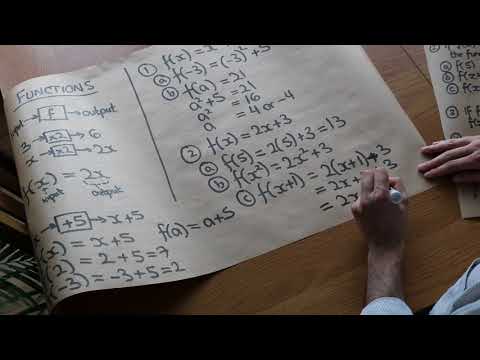 FUNCTIONS
f → output
3 → x2 → 6
x → x2 → 2x
f(x) = 2x
input output
x → +5 → x+5
f(x) = x+5
f(2) = 2+5=7
f(-3) = -3+5=2
f(a) = a+5
① f(x) = x² + 5
ⓐ f(-3) = (-3)² + 5
ⓑ f(a) = 21
a²+5 = 21
a² = 16
a = 4 or -4
② f(x) = 2x+3
ⓐ f(5) = 2(5)+3 = 13
ⓑ f(x²) = 2x²+3
ⓒ f(x+1) = 2(x+1)+3
= 2x 3
= 2x
the
ⓐ f(5)
ⓑ
ⓒ
③ If